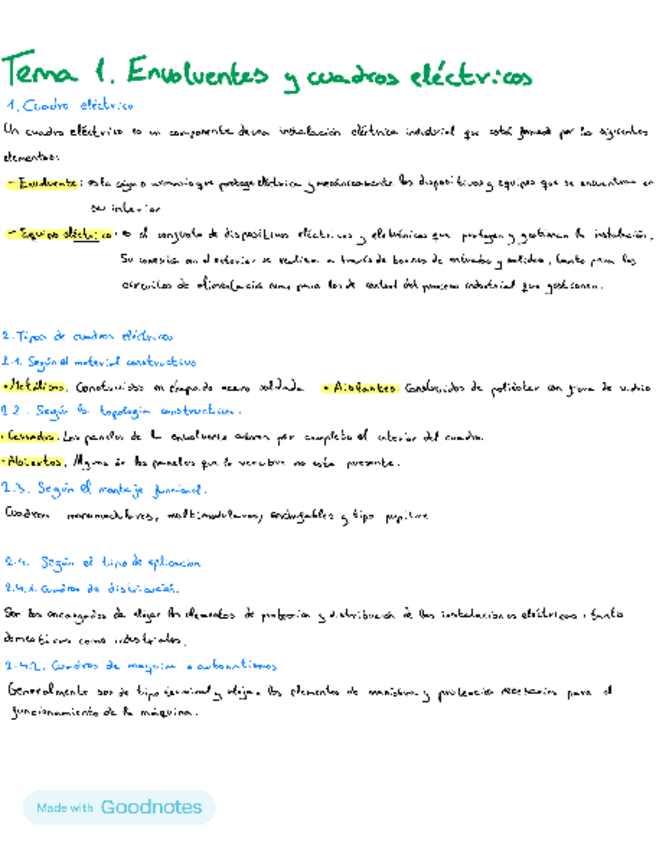 Tema 1. Envolventes y cuadros eléctricos
1. Cuadro eléctrico
Un cuadro eléctrico es un componente de una instalación eléctrica industrial que está formado por los siguientes
elementos:
- Envolvente: es la caja o armario que protege eléctrica y mecánicamente los dispositivos y equipos que se encuentran en
su interior
- Equipo eléctrico: es el conjunto de dispositivos eléctricos y eletrónicos que protegen y gestionan la instalación.
Su conexión con el exterior se realiza a través de bornes de entrada y salida, tanto para los
circuitos de alimentación como para los de control del proceso industrial que gestionan.
2. Tipos de cuadros eléctricos
2.1. Según el material constructivo
• Metálicos. Construidos en chapa de acero soldada • Aislantes. Construidos de poliéster con fibra de vidrio
2.2. Según la topología constructiva.
• Cerrados. Los paneles de la envolvente cubren por completo el interior del cuadro.
• Abiertos. Alguno de los paneles que lo recubre no está presente.
2.3. Según el montaje funcional.
Cuadros monomodulares, multimodulares, enchufables y tipo pupitre
2.4. Según el tipo de aplicación
2.4.1. Cuadros de distribución.
Son los encargados de alojar los elementos de protección y distribución de las instalaciones eléctricas, tanto
domésticas como industriales.
2.4.2. Cuadros de máquina o automatismos
Generalmente son de tipo y alojan los elementos de maniobra y protección necesarios para el
funcionamiento de la máquina.
Made with Goodnotes